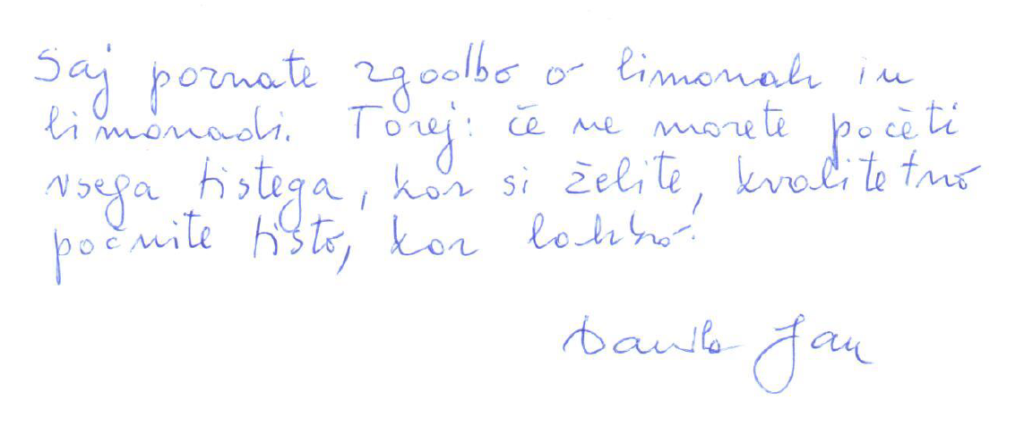 Saj poznate zgodbo o limonah in
limonadi. Torej: če ne morete početi
vsega tistega, kar si želite, kvalitetno
počnite tisto, kar lahko.
Danilo Jan